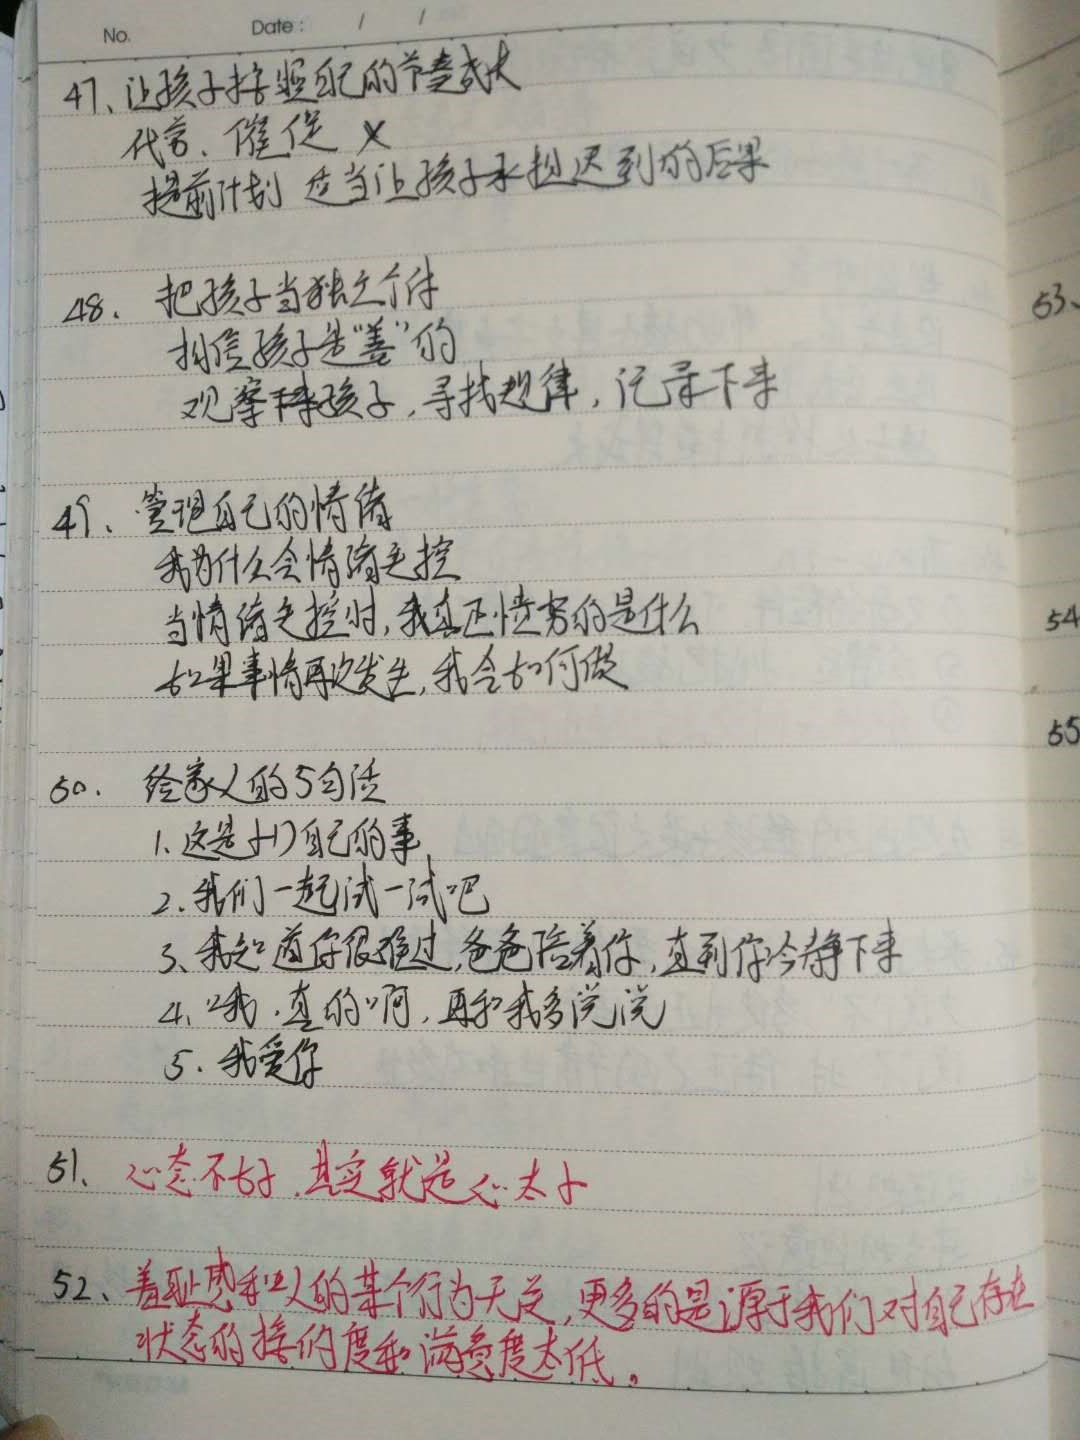 No.
Date: / /
47、让孩子按照自己的节奏成长
代劳、催促 X
提前计划 适当让孩子承担迟到的后果
48. 把孩子当独立个体
相信孩子是“善”的
观察孩子,寻找规律,记录下来
49、管理自己的情绪
我为什么会情绪失控
当情绪失控时,我真正愤怒的是什么
如果事情再次发生,我会如何做
50. 给家人的5句话
1.这是你自己的事
2.我们一起试一试吧
3、我知道你很难过,爸爸陪着你,直到你冷静下来
4、哦,真的啊,再和我多说说
5.我爱你
51、心态不好,其实就是心太小
52、羞耻感和人的某个行为无关,更多的是源于我们对自己存在
状态的接纳度和满意度太低。
53、
54
55